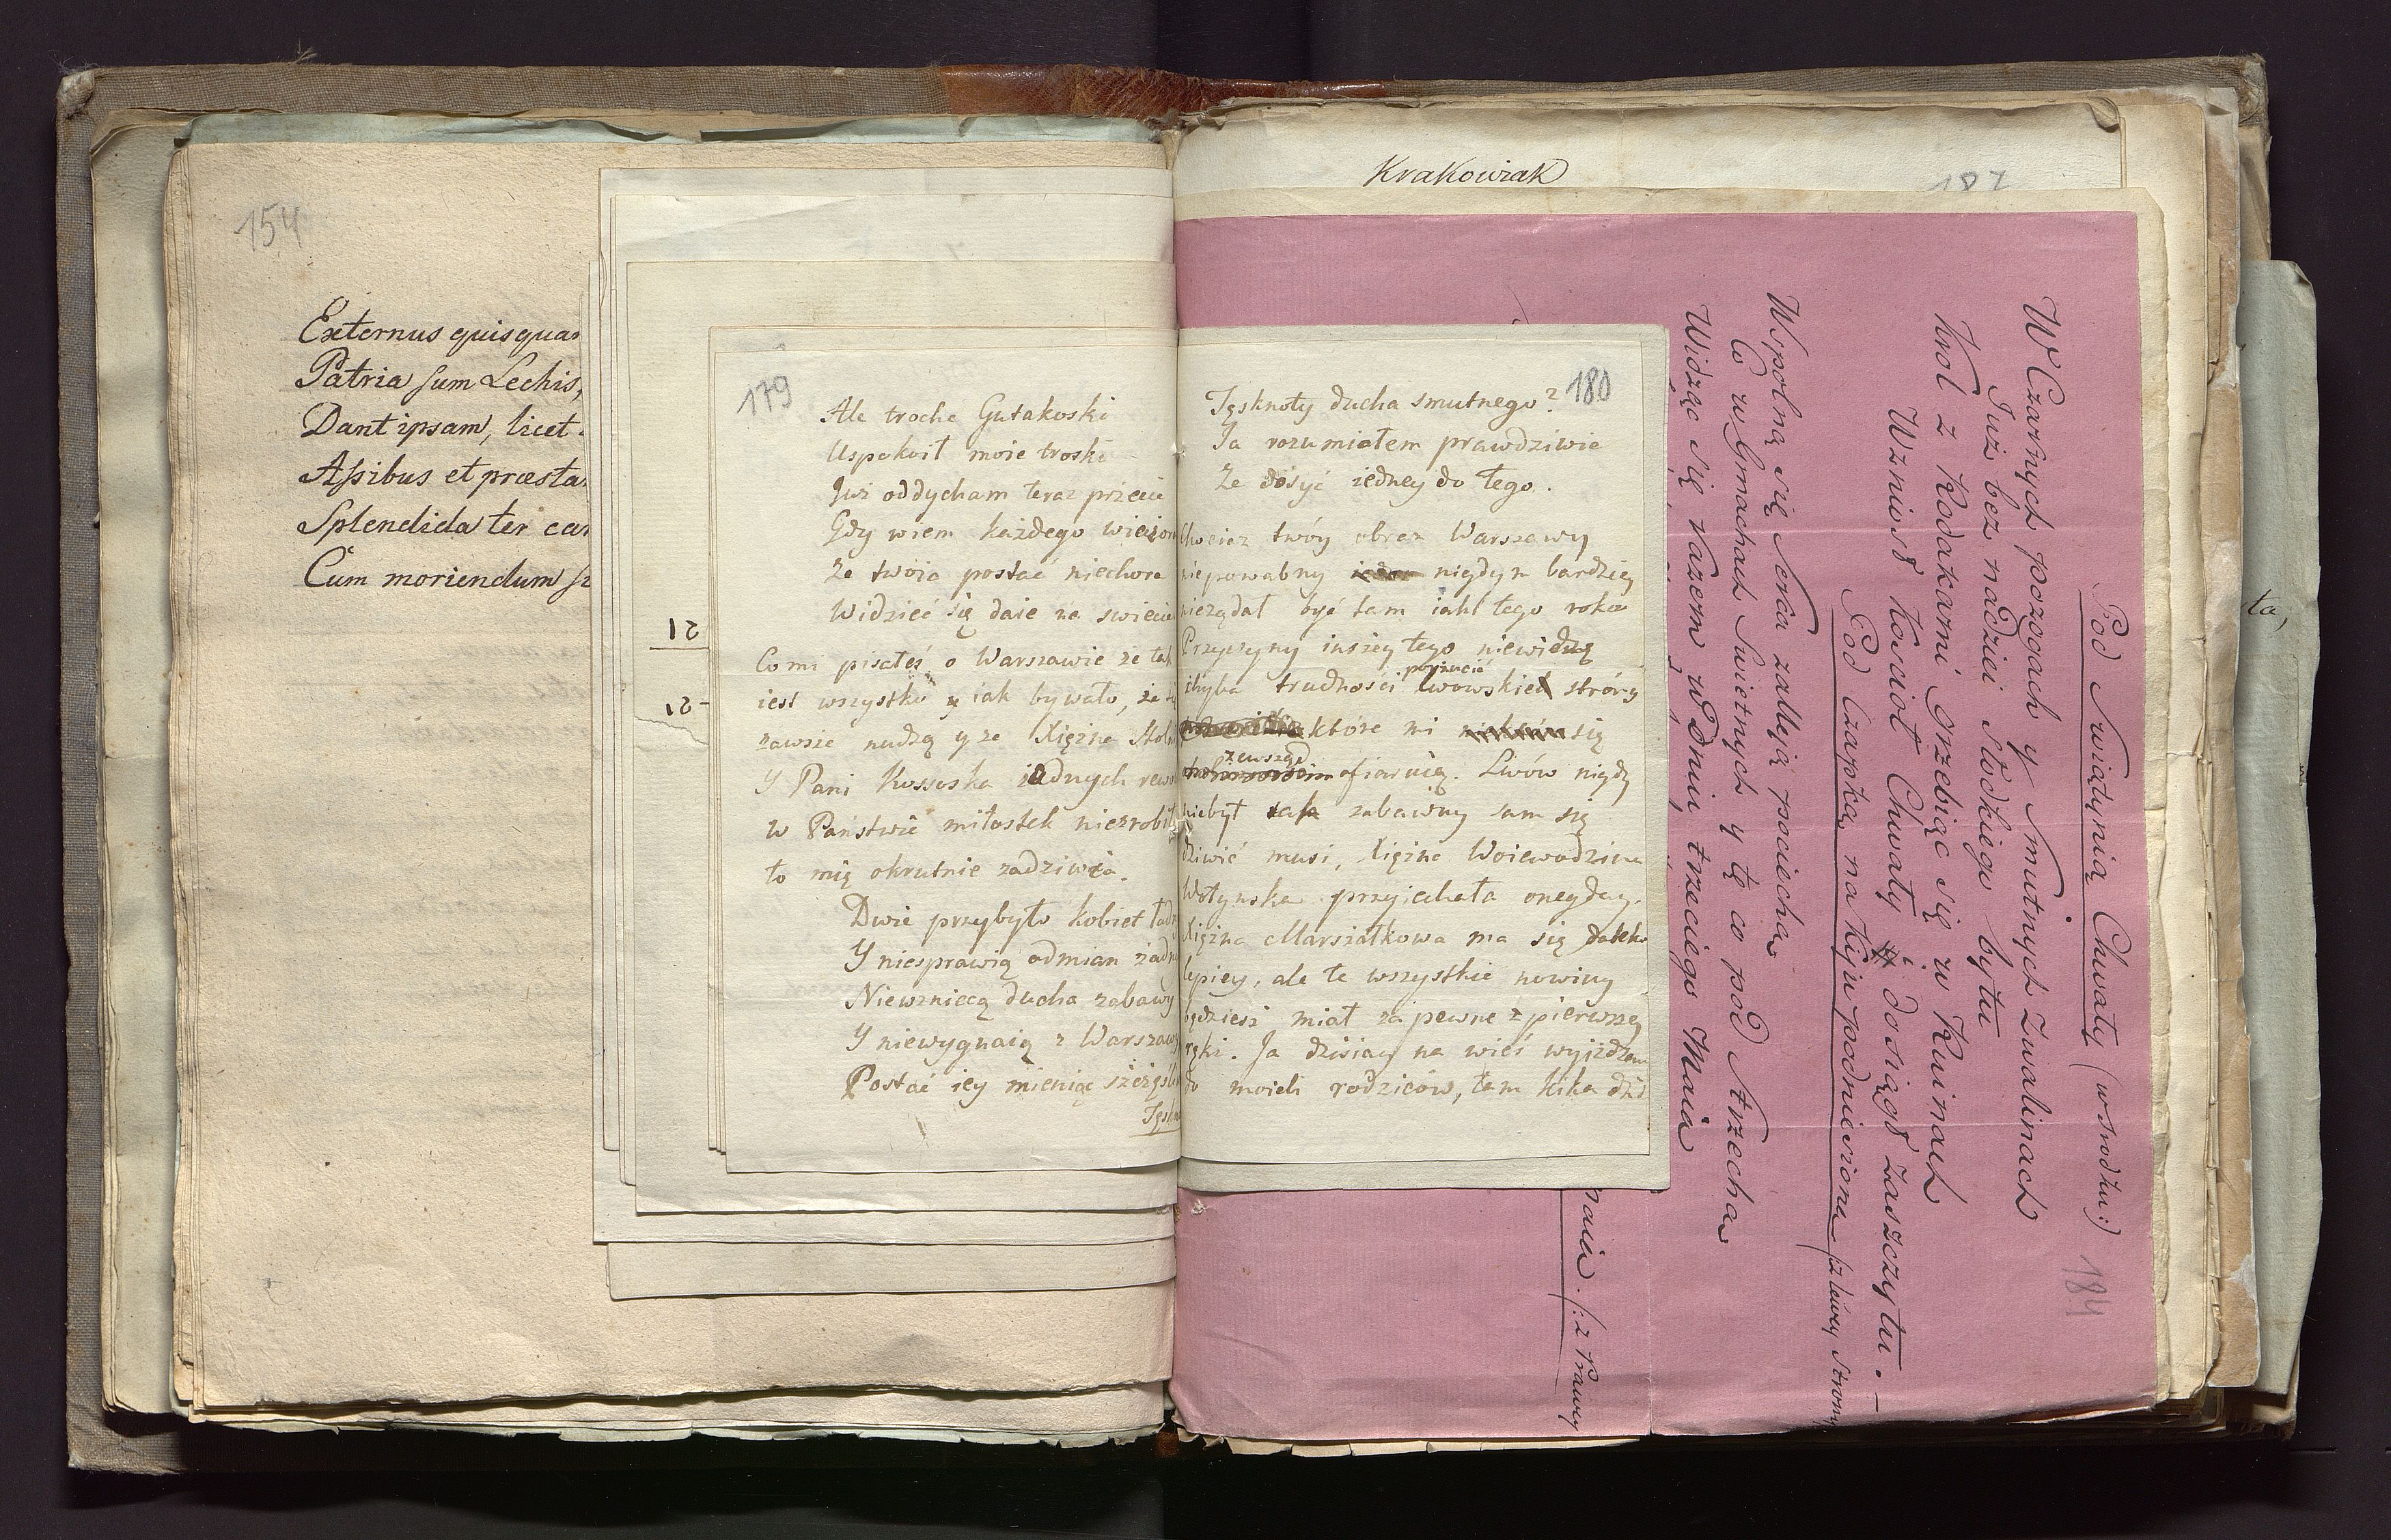 154
Externus quisquam
Patria sum Lechis,
Dant ipsam, licet
Assibus et præsta
Splendida ter car
Cum moriendum s
12
12-
179
Ale troche Gutakoski
Uspokoił moie troski
Już oddycham teraz przecie
Gdy wiem każdego wieczor
Ze twoia postać niechora
Widzieć się daie na swiecie
Co mi pisałeś o Warszawie że tak
iest wszystko y iak bywało, że
zawsze nudzą y ze Xiężna Stoln
Y Pani Kossoska żadnych rewo
w Państwie miłostek niezrobiły
to mię okrutnie zadziwia.
Dwie przybyło kobiet ładn
Y niesprawią odmian żadn
Niewzniecą ducha zabawy
Y niewygnaią z Warszawy
Postać iey mieniąc szczegól
Tęskn
180
Tęsknoty ducha smutnego?
Ja rozumiałem prawdziwie
Ze dosyć iedney do tego.
Chociaż twóy obraz Warszawy
niepowabny nigdym bardziey
nieżądał być tam iakl tego roku
Przyczyny inszey tego niewidzę
chyba trudności porzucić lwowskiey stróny
które mi się
zewsząd ofiaruią. Lwów nigdy
niebył tak zabawny sam się
dziwić musi, Xiężna Woiewodzina
Wołynska przyiechała onegday.
Xiężna Marszałkowa ma się daleko
lepiey, ale te wszystkie nowiny
będziesz miał zapewne z pierwszey
ręki. Ja dzisiay na wieś wyieżdżam
do moich rodziców, tam kilka dni
Krakowiak
187
184
Pod Swiątynią Chwały (w srodku:)
W Czarnych pożogach y smutnych zwalinach
Już bez nadziei słodkiego bytu
Krol z Rodakami grzebiąc się w Ruinach
Wzniosł Kościoł Chwały i dosiągł zaszczytu. —
Pod Czapką na Kiju podniesioną (z lewey strony
Wspolną się serca zaleją pociechą
Co w Gmachach swietnych y tę co pod strzechą
Widząc się razem w Dniu trzeciego Maia
(: z Prawey
ta,